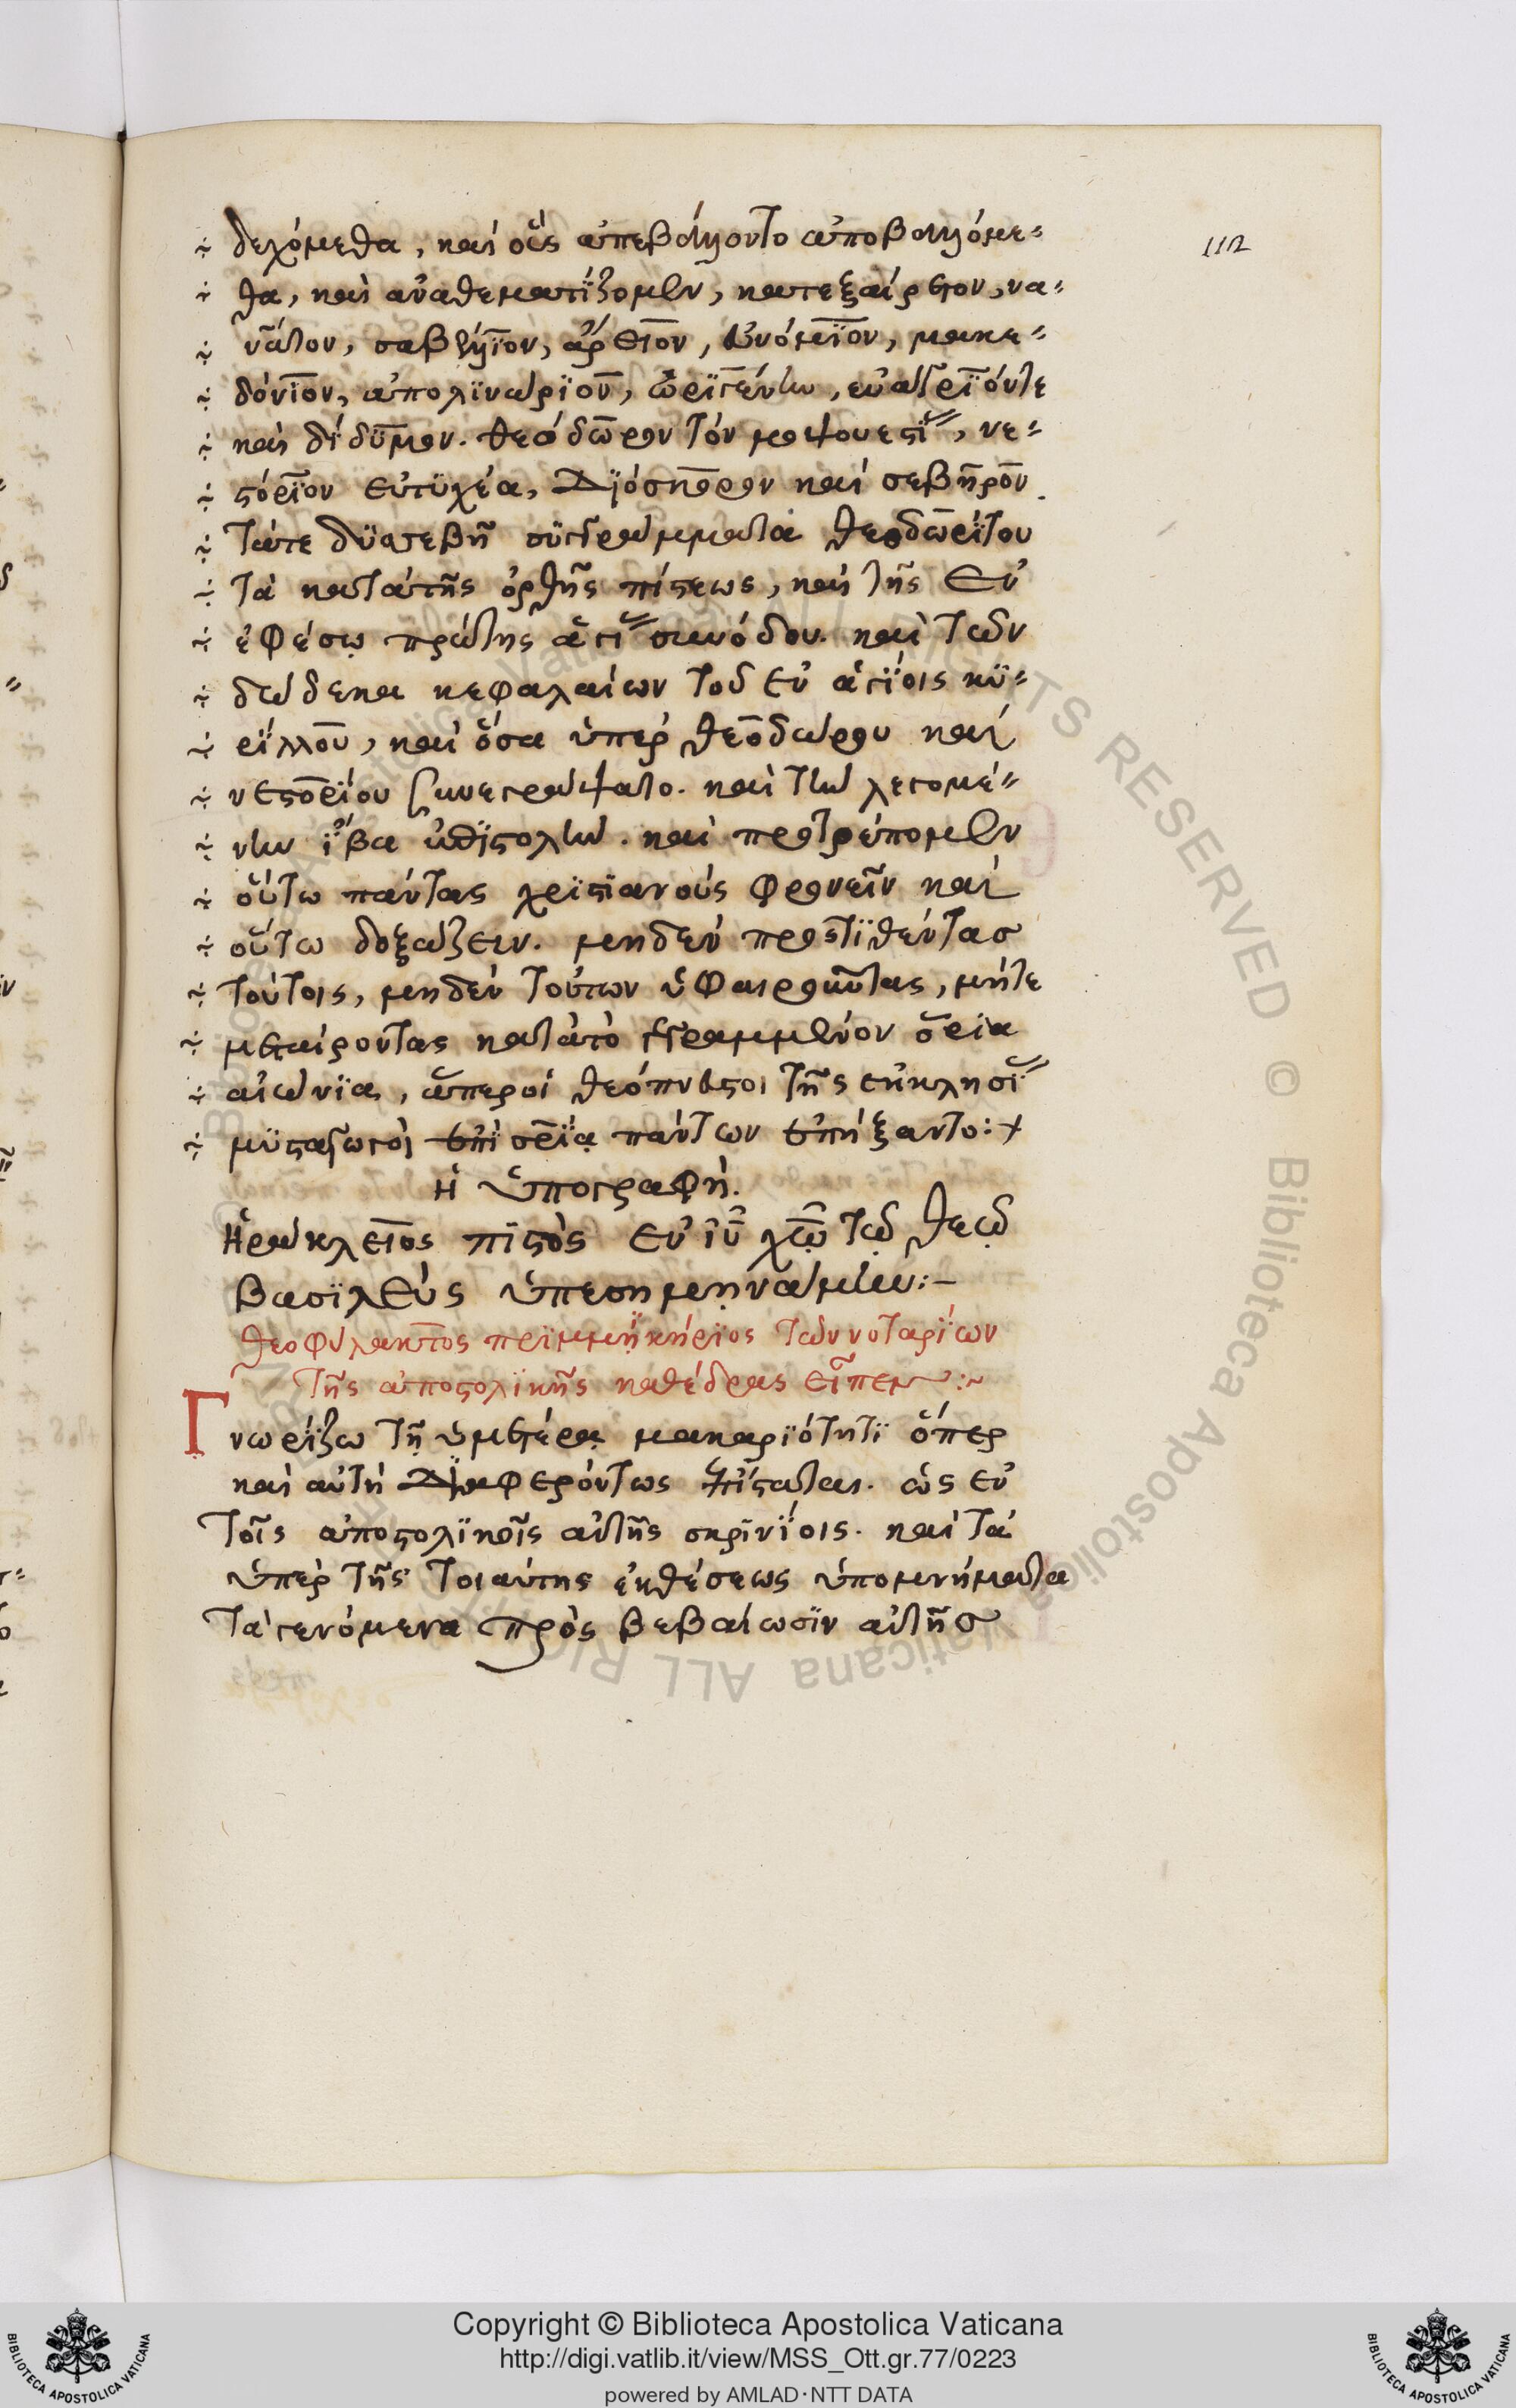 δεχόμεθα, καὶ οὓς ἀπεβάλλοντο ἀποβαλλόμε=
112
θα, καὶ ἀναθεματίζομεν, κατεξαίρετον, να=
υᾶτον, σαβέλλϊον, ἄρειον, εὐνόμϊον, μακε=
δόνϊον, ἀπολϊνάρϊον, ὠρϊγένην, εὐάγρϊόν τε
καὶ δίδυμον. θεόδωρον τὸν μοψουεστί, νε=
στόρϊον εὐτϋχέα, Διόσκορον καὶ σεβῆρον
τάτε δϋσσεβῆ σϋγγράμματα θεοδωρίτου
τὰ κατὰ τῆς ὀρθῆς πίστεως, καὶ τῆς ἐν
ἐφέσῳ πρώτης ἁγί συνόδου. καὶ τῶν
δώδεκα κεφαλαίων τοῦ ἐν ἁγϊοις κϋ=
ρίλλου, καὶ ὅσα ὑπὲρ θεοδώρου καὶ
νεστορϊου συνεγράψατο. καὶ τὴν λεγομέ=
νην ἴβα ἐπϊστολὴν. καὶ προτρέπομεν
οὕτω πάντας χριστϊανοὺς φρονεῖν καὶ
οὕτω δοξάζειν. μηδὲν προστϊθέντασ
τούτοις, μηδὲν τούτων ὑφαιροῦντας, μήτε
μεταίροντας κατὰ τὸ γεγραμμένον ὅρια
αἰώνϊα, ἅπερ οἱ θεόπνευστοι τῆς ἐκκλησί
μϋσταγωγοὶ ἐπὶ σωτηρίᾳ πάντων ἐπήξαντο:+
ἡ ὑπογραφή.
Ἡράκλειος πιστὸς ἐν ἰῦ χῶ τῷ θεῷ
βασϊλεὺς ὑπεσημηνάμην:–
θεοφύλακτος πρϊμμϊκήρϊος τῶν νοταρίων
τῆς ἀποστολϊκῆς καθέδρας εἶπεν:~
Γνωρίζω τῇ ὑμετέρᾳ μακαρϊότητϊ ὅπερ
καὶ αὐτὴ Διαφερόντως ἐπίσταται. ὡς ἐν
τοῖς ἀποστολϊκοῖς αὐτῆς σκρϊνίοις. καὶ τὰ
ὑπὲρ τῆς τοιαύτης ἐκθέσεως ὑπομνήματα
τὰ γενόμενα πρὸς βεβαίωσϊν αὐτῆσ
Copyright © Biblioteca Apostolica Vaticana
http://digi.vatlib.it/view/MSS_Ott.gr.77/0223
powered by AMLAD·NTT DATA